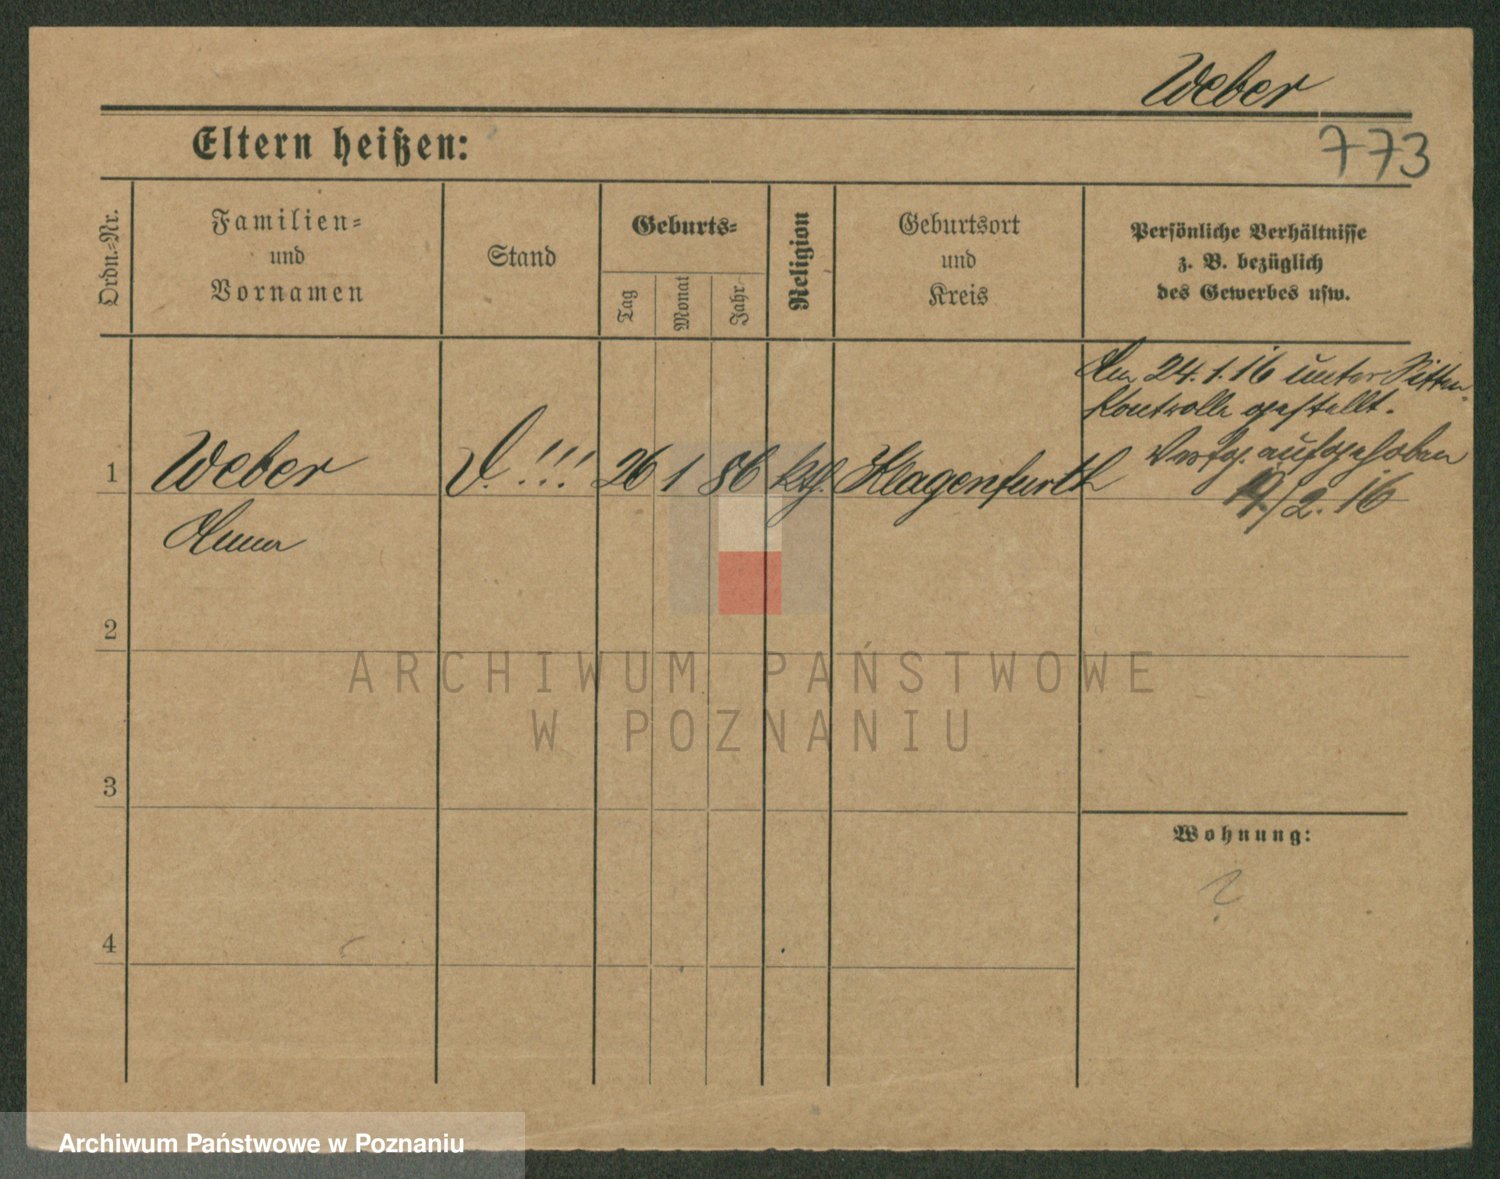 Weber
Eltern heißen:
773
Ordn.-Nr.
Familien-
und
Vornamen
Stand
Geburts-
Tag
Monat
Jahr
Religion
Geburtsort
und
Kreis
Persönliche Verhältnisse
z. B. bezüglich
des Gewerbes usw.
Am 24.1.16 unter Sitten-
kontrolle gestellt.
1 Weber !!! 26 1 86 kth. Klagenfurth
Verfg. aufgehoben
/2.16
Anna
2
ARCHIWUM PAŃSTWOWE
W POZNANIU
3
Wohnung:
?
4
Archiwum Państwowe w Poznaniu